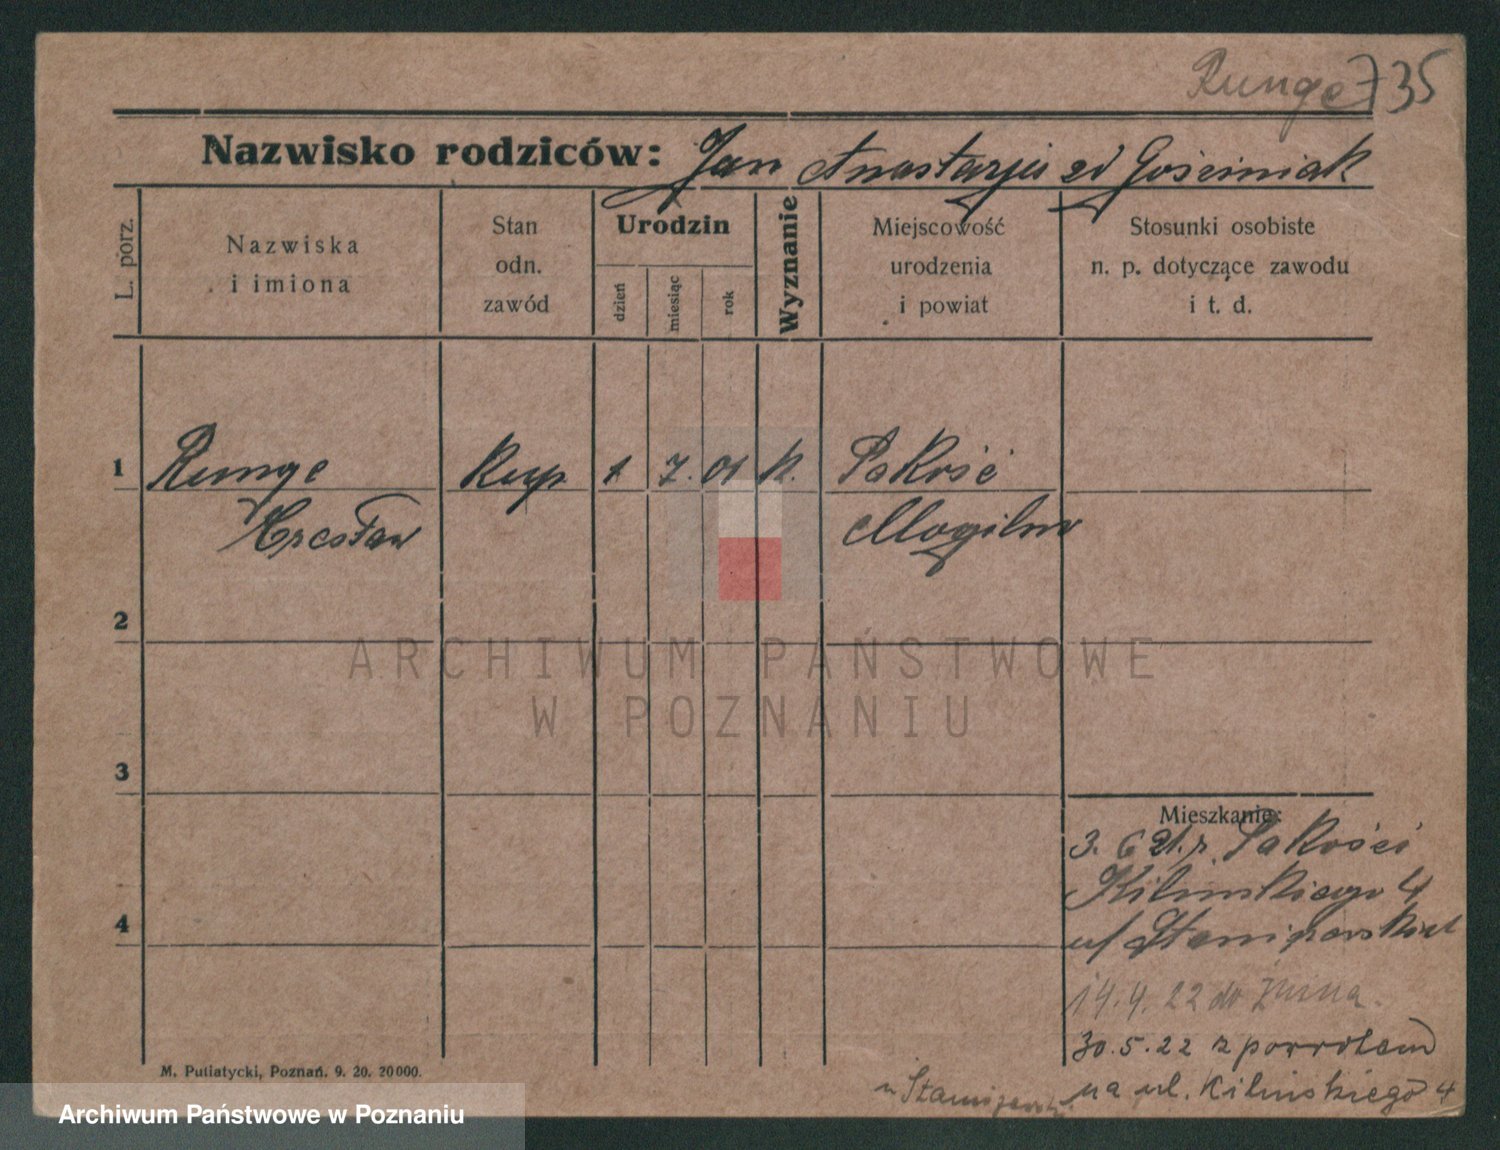 Runge 35
Nazwisko rodziców: Jan Anastazja zd Gościniak
L. porz.
Nazwiska
i imiona
Stan
odn.
zawód
Urodzin
dzień
miesiąc
rok
Wyznanie
Miejscowość
urodzenia
i powiat
Stosunki osobiste
n. p. dotyczące zawodu
i t. d.
1 Runge kup. 1 7. 01 k. Pakość
Czesław Mogilno
2
ARCHIWUM PAŃSTWOWE
W POZNANIU
3
Mieszkanie:
3. 6 21. z Pakości
Kilińskiego 4
4
14.4.22 do Żnina.
30.5.22 z powrotem
na ul. Kilińskiego 4
M. Putiatycki, Poznań. 9. 20. 20000.
Archiwum Państwowe w Poznaniu